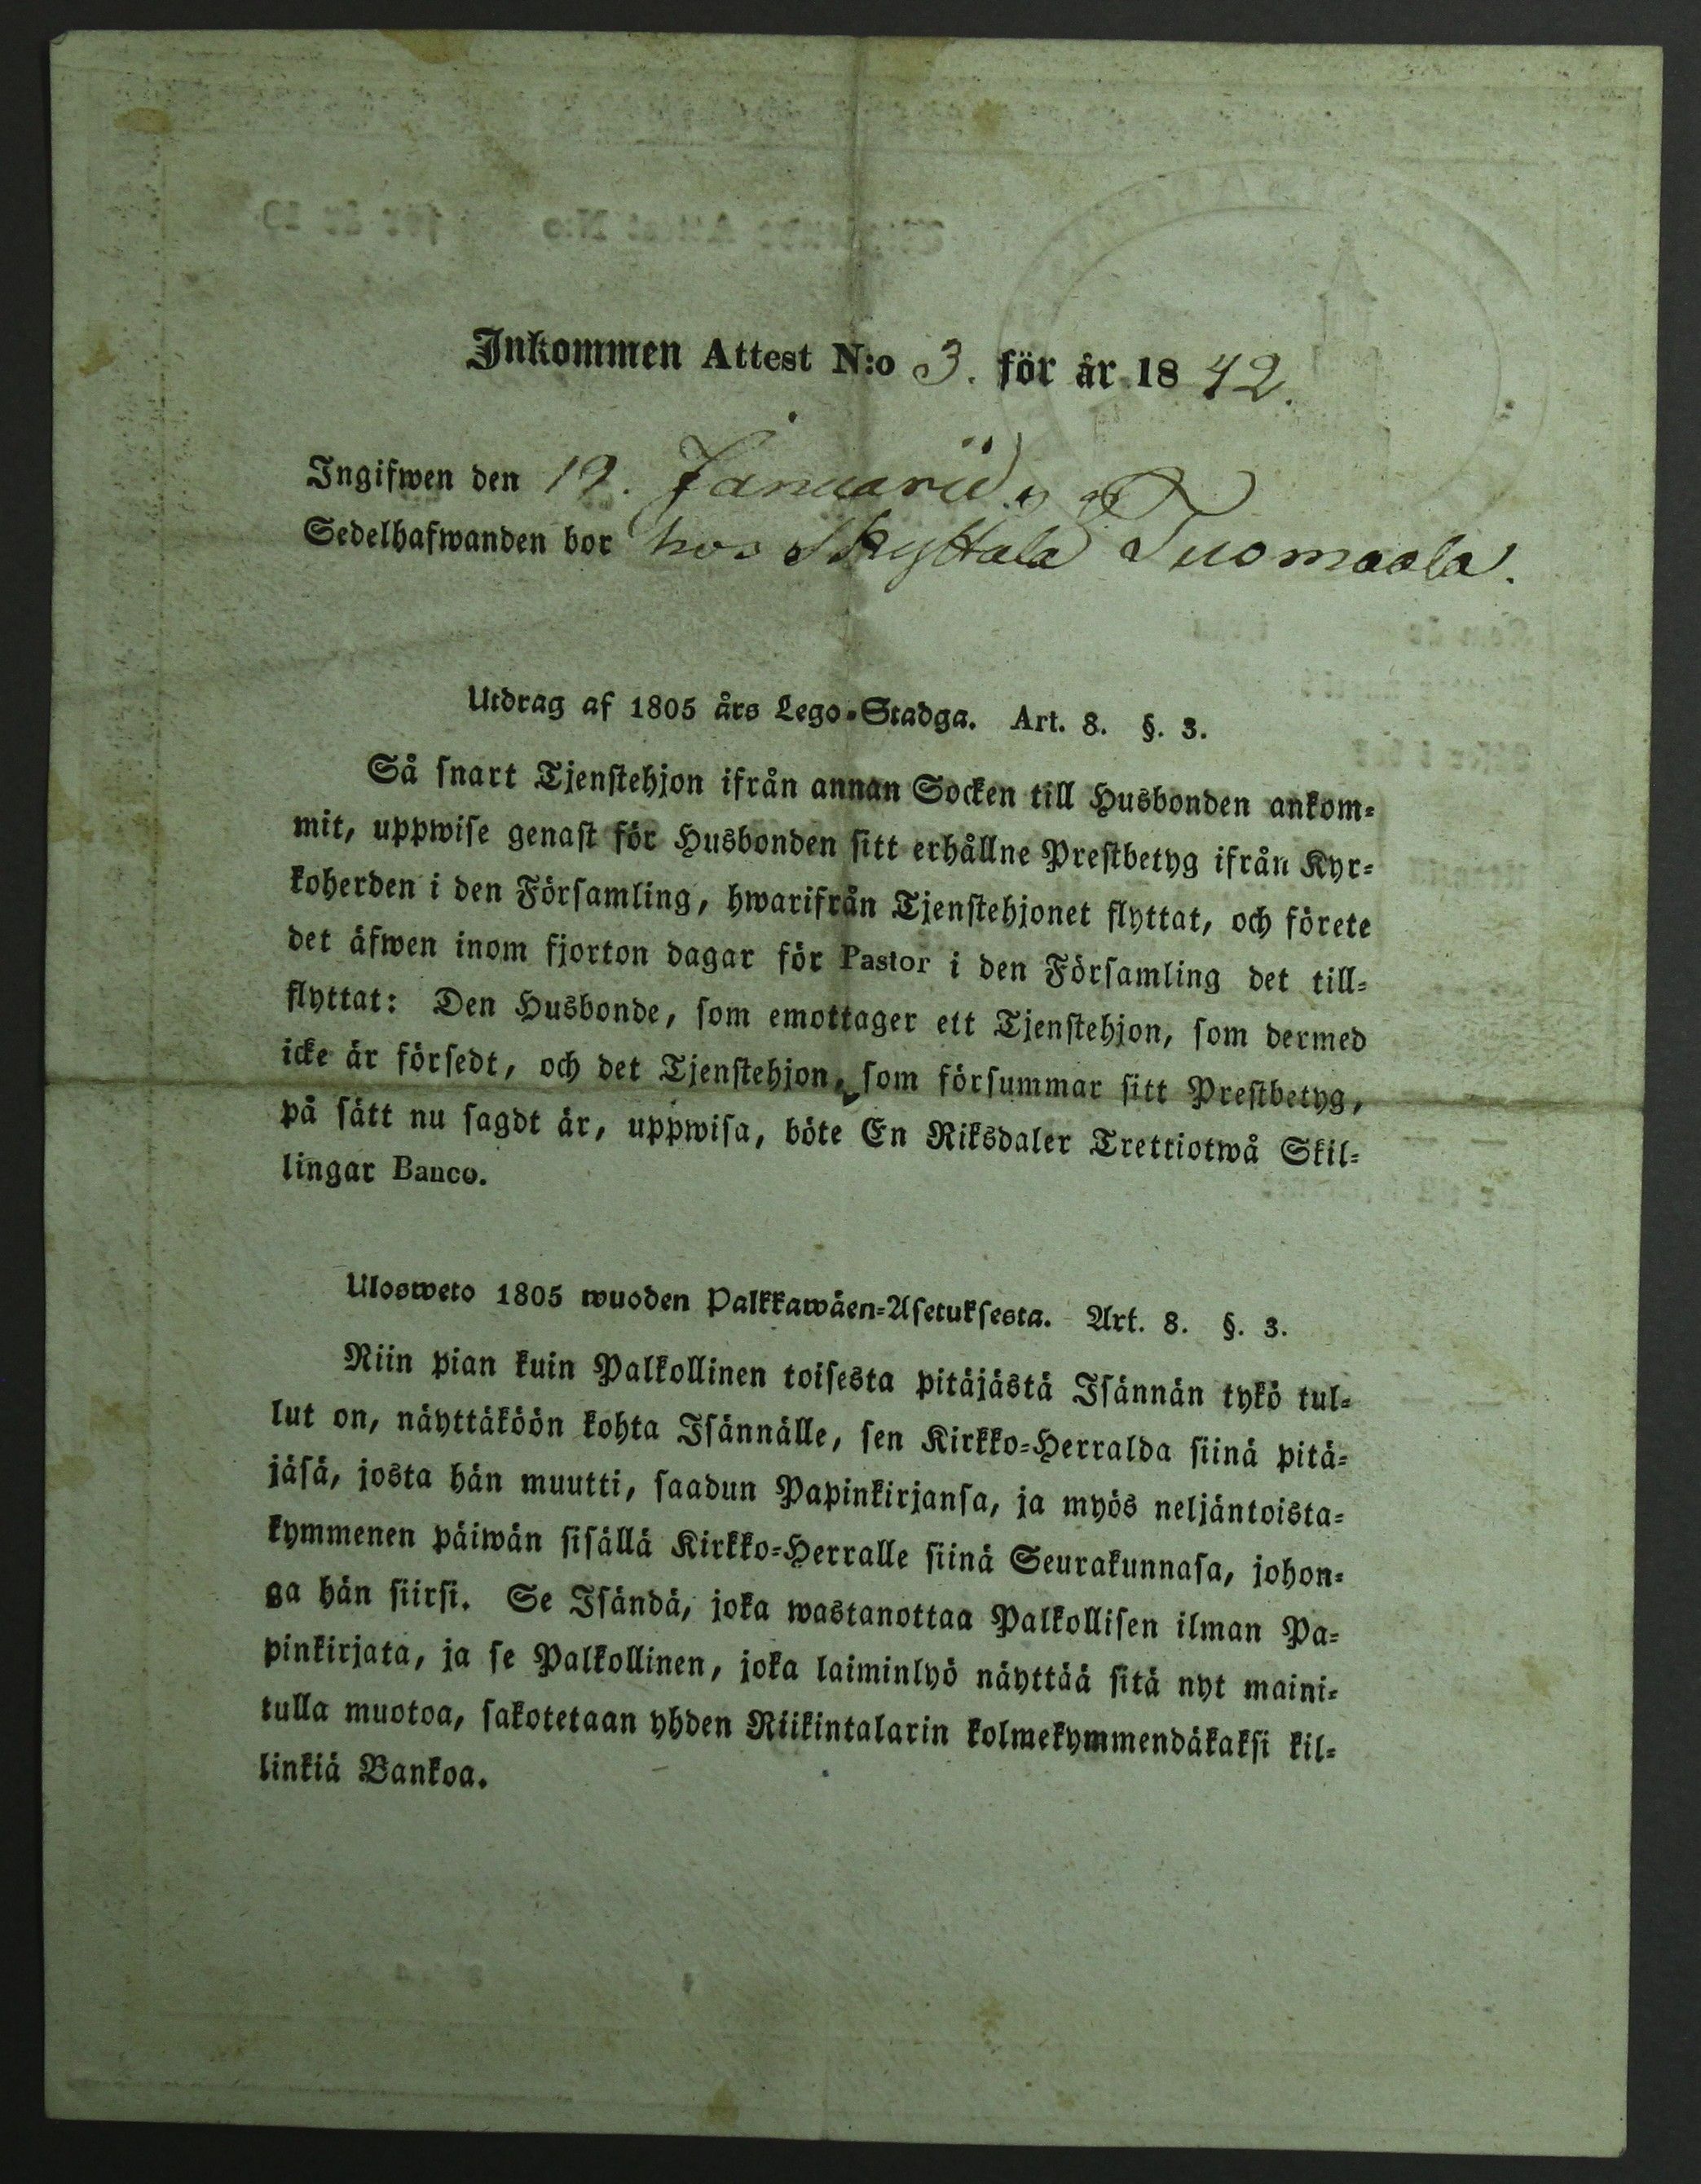 Inkommen Attest N:o 3. för år 1842.
Ingifwen den 19. Januarii
Sedelhafwanden bor hos Skyttala Tuomaala.
Utdrag af 1805 års Lego-Stadga. Art. 8. §. 3.
Så snart Tjenstehjon ifrån annan Socken till Husbonden ankom-
mit, uppwise genast för Husbonden sitt erhållne Prestbetyg ifrån Kyr-
koherden i den Församling, hwarifrån Tjenstehjonet flyttat, och förete
det äfwen inom fjorton dagar för Pastor i den Församling det till-
flyttat: Den Husbonde, som emottager ett Tjenstehjon, som dermed
icke är försedt, och det Tjenstehjon, som försummar sitt Prestbetyg,
på sätt nu sagdt är, uppwisa, böte En Riksdaler Trettiotwå Skil-
lingar Banco.
Ulosweto 1805 wuoden Palkkawäen-Asetuksesta. Art. 8. §. 3.
Niin pian kuin Palkollinen toisesta pitäjästä Isännän tykö tul-
lut on, näyttäköön kohta Isännälle, sen Kirkko-Herralda siinä pitä-
jäsä, josta hän muutti, saadun Papinkirjansa, ja myös neljäntoista-
kymmenen päiwän sisällä Kirkko-Herralle siinä Seurakunnasa, johon-
ga hän siirsi. Se Isändä, joka wastanottaa Palkollisen ilman Pa-
pinkirjata, ja se Palkollinen, joka laiminlyö näyttää sitä nyt maini-
tulla muotoa, sakotetaan yhden Riikintalarin kolmekymmendäkaksi kil-
linkiä Bankoa.